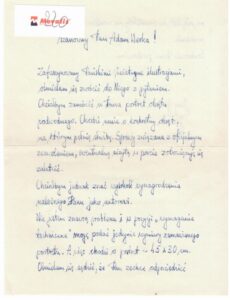 Szanowny Pan Adam Werka!
Zafascynowany Pańskimi pięknymi ilustracjami,
ośmielam się zwrócić do Niego z pytaniem.
Chciałbym zamówić w Pana portret okrętu
podwodnego. Chodzi mnie o konkretny okręt,
na którym pełnię służbę. Sprawy związane z oficjalnym
zezwoleniem, ewentualną wizytą w porcie zobowiązuję się
załatwić.
Chciałbym jednak znać wysokość wynagrodzenia
należnego Panu jako autorowi.
Nie jestem znawcą problemu i w pozycji "wymagania
techniczne" mogę podać jedynie wymiary zamawianego
portretu. A więc chodzi o portret ~ 45 x 30 cm.
Ośmielam się sądzić, że Pan zechce odpowiedzieć